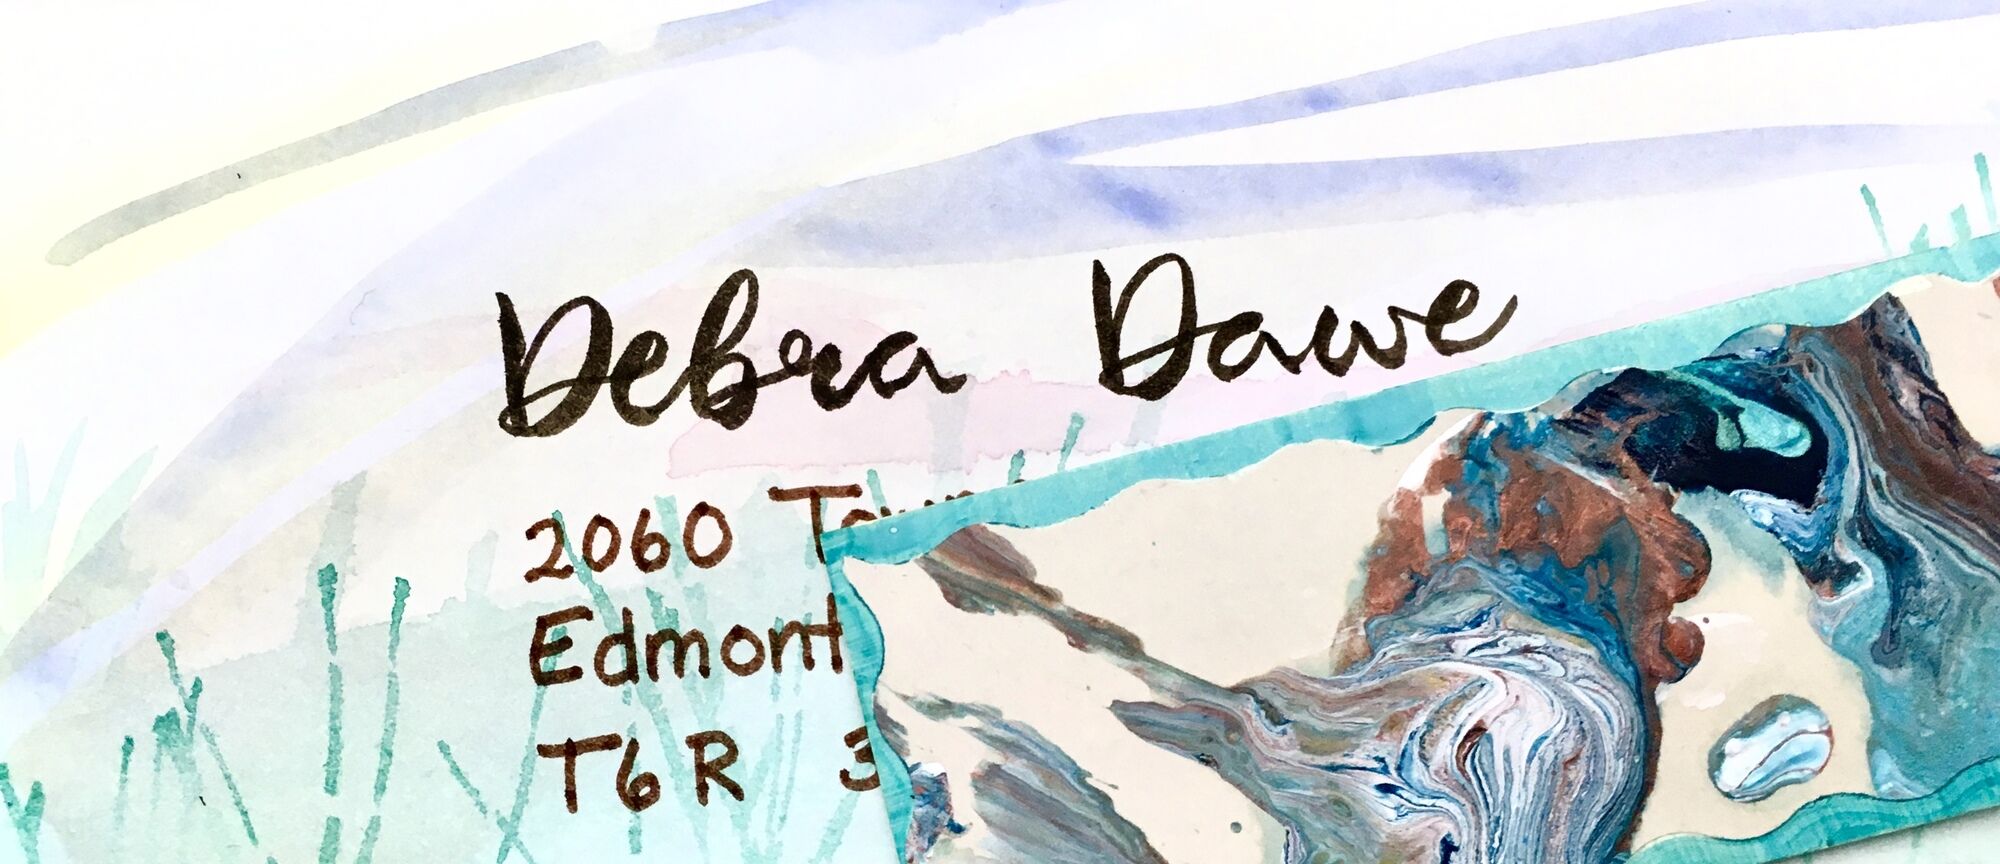 Debra Dawe
2060
Edmont
T6R 3